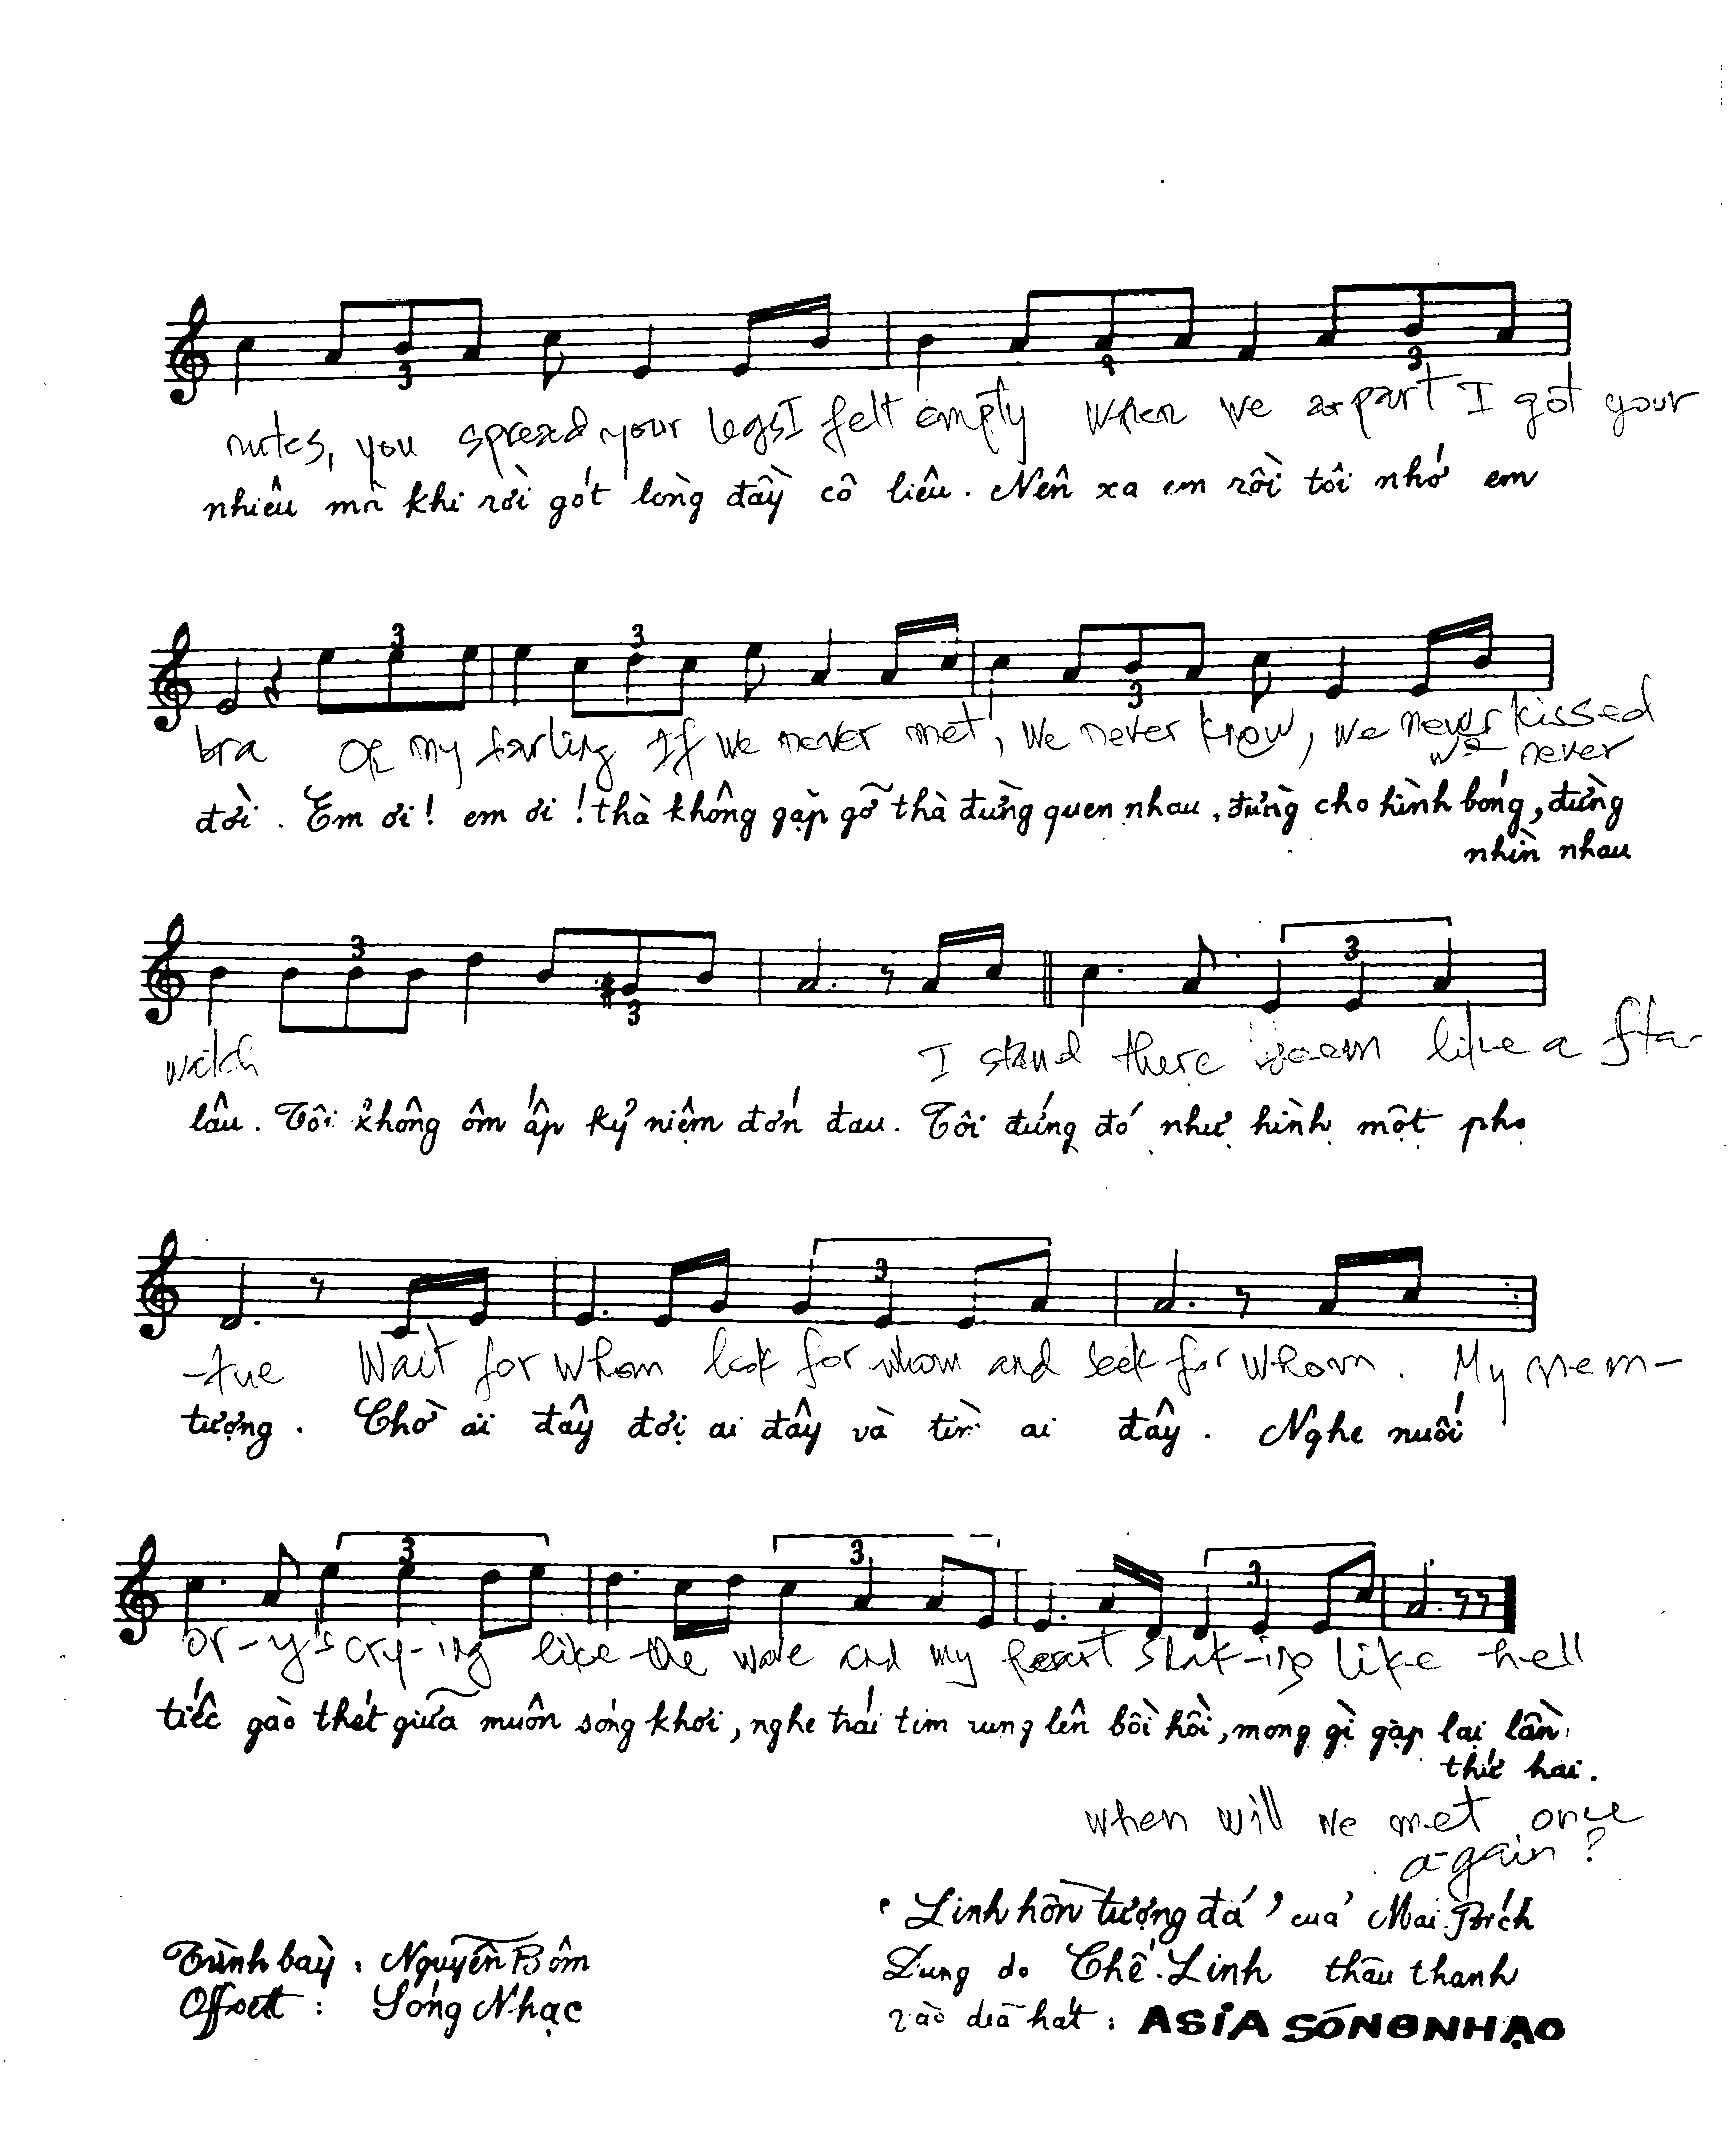 nutes, you spread your legs I felt empty when we apart I got your
nhiêu mà khi rời gót lòng đầy cô liêu. Nên xa em rồi tôi nhớ em
bra Oh my farling If we never met, we never know, we never kissed
we never
đời. Em ơi! em ơi! thà không gặp gỡ thà đừng quen nhau, đừng cho hình bóng, đừng
nhìn nhau
watch I stand there seem like a sta-
lâu. Tôi không ôm ấp kỷ niệm đớn đau. Tôi đứng đó như hình một pho
-tue Wait for whom look for whom and seek for whom. My mem-
tượng. Chờ ai đây đợi ai đây và tìm ai đây. Nghe nuối
or-y's cry-ing like the wave and my heart shak-ing like hell
tiếc gào thét giữa muôn sóng khơi, nghe trái tim rung lên bồi hồi, mong gì gặp lại lần
thứ hai.
when will we met once
a-gain?
"Linh hồn tượng đá" của Mai Bích
Trình bày: Nguyễn Bôm
Dung do Chế-Linh thâu thanh
Offsett: Sóng Nhạc
vào dĩa hát: ASIA SÓNGNHẠC